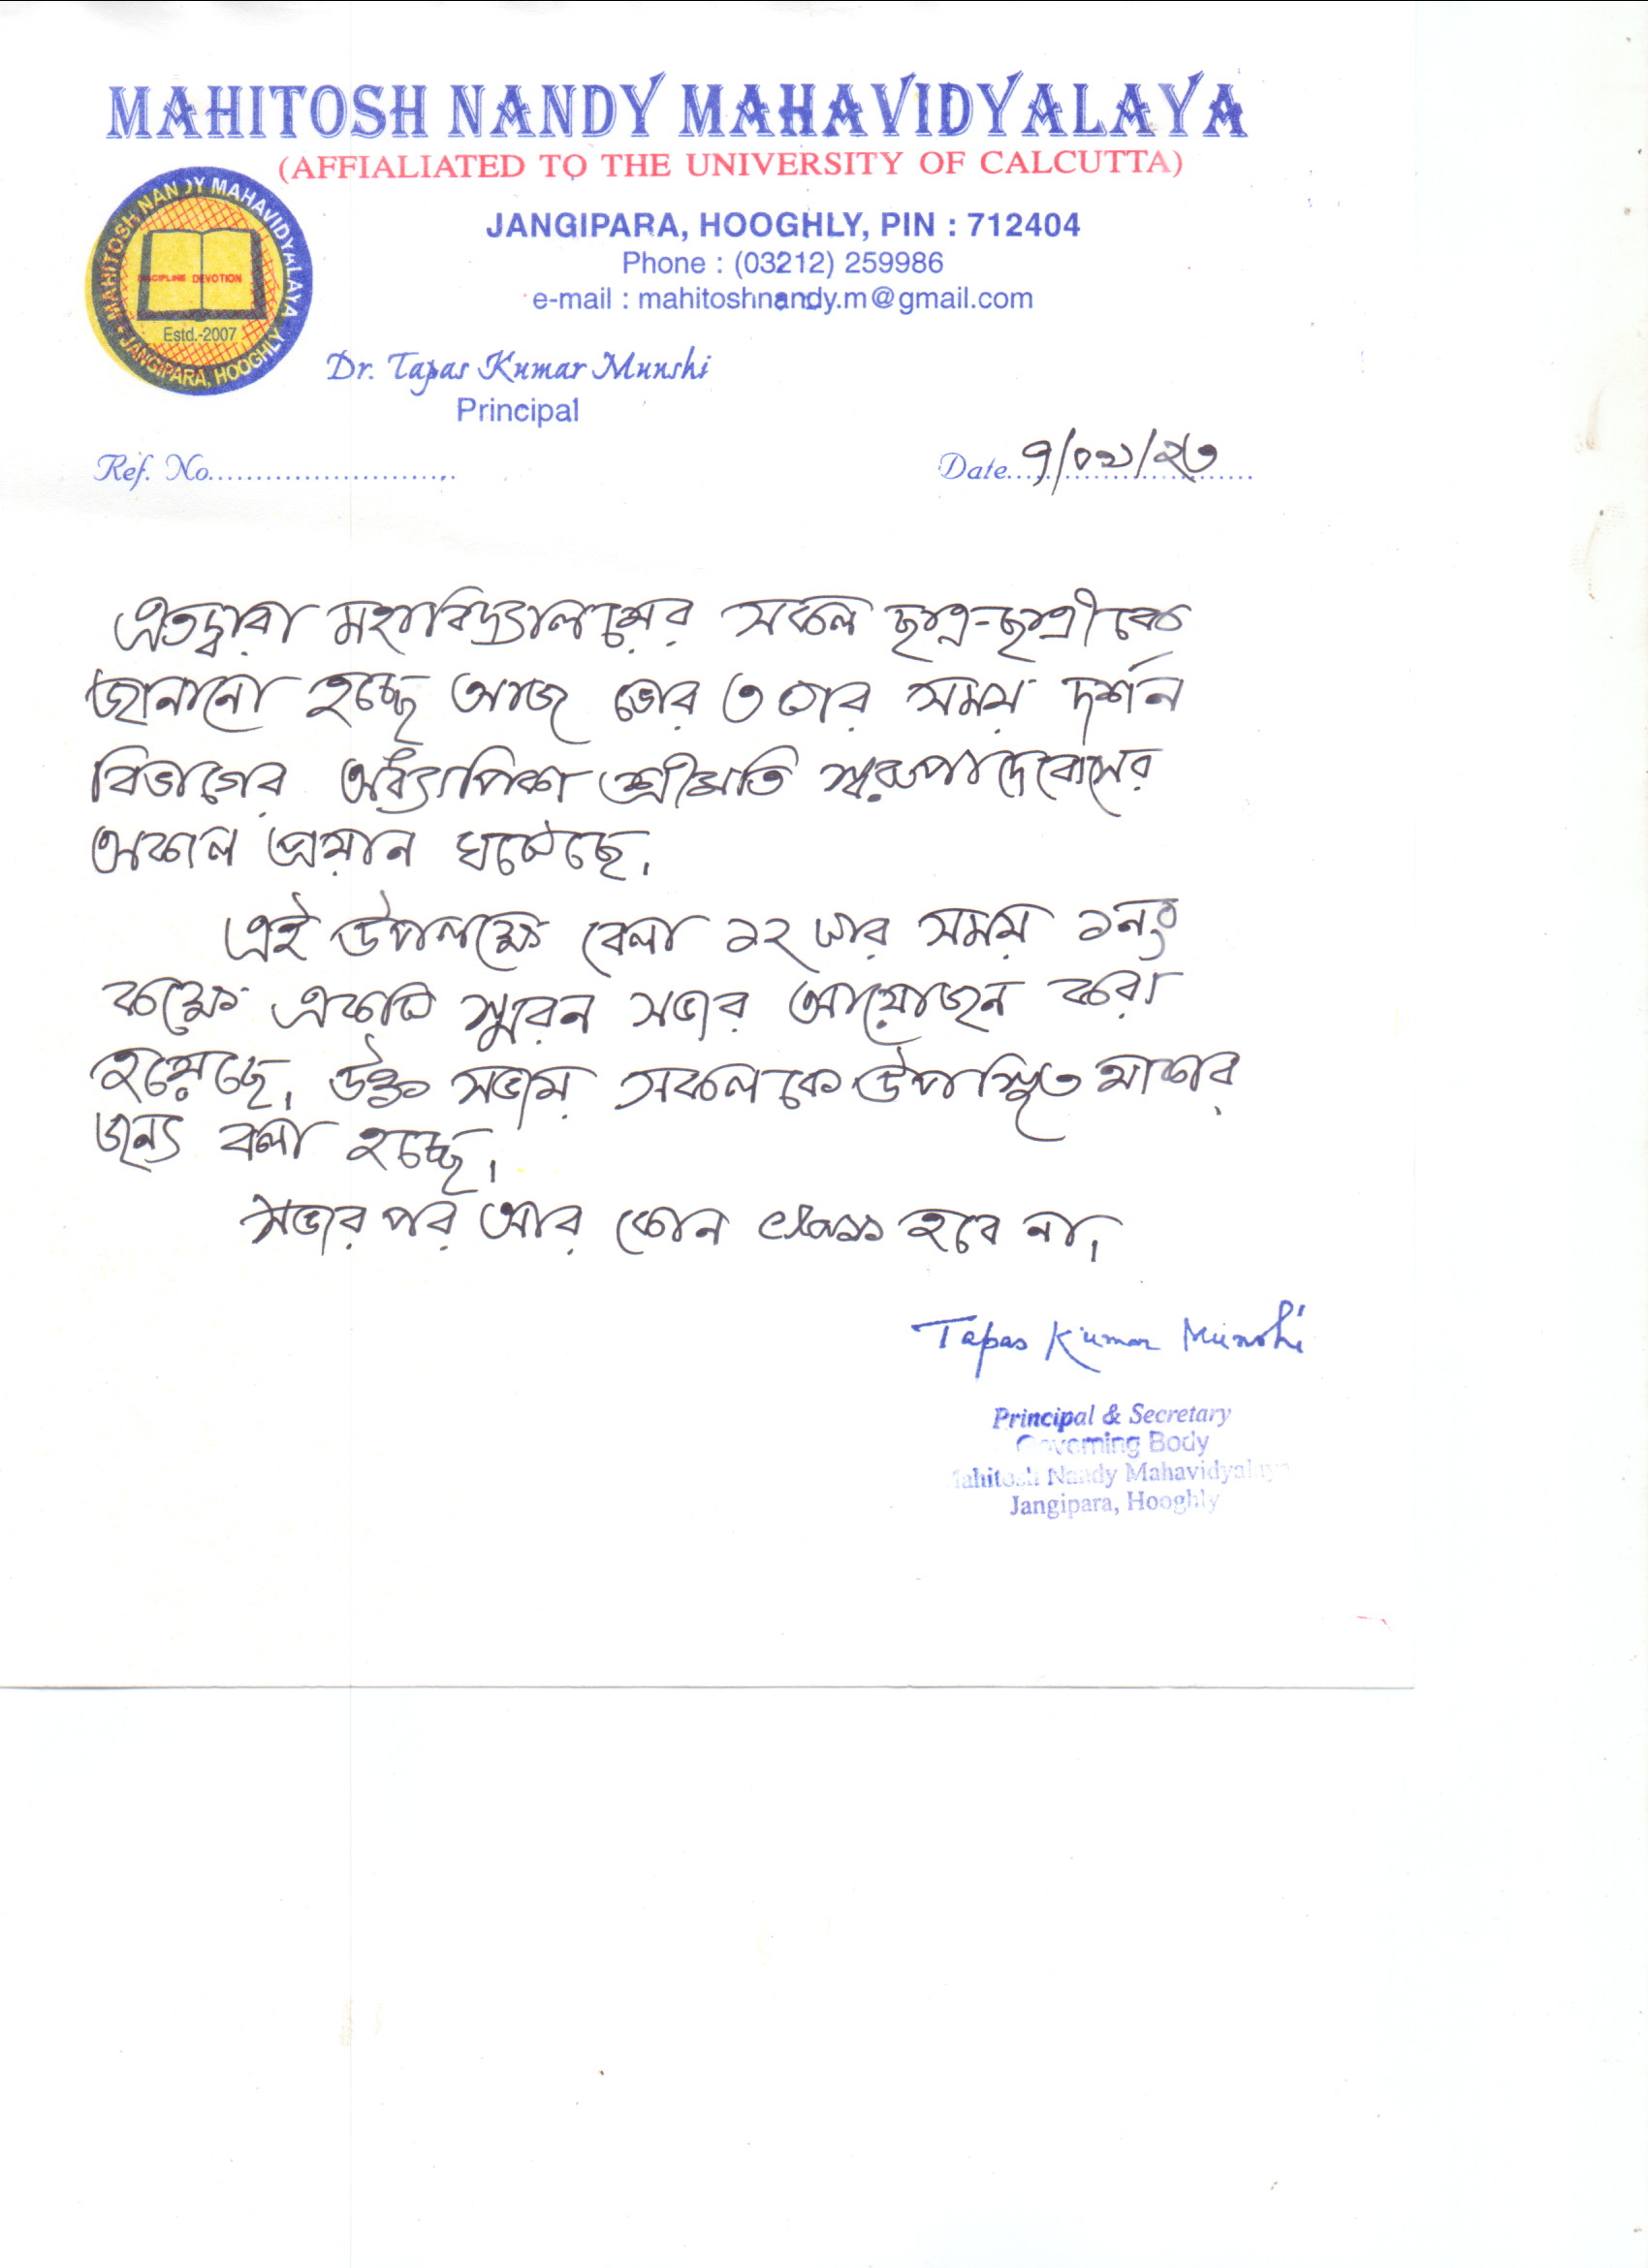 MAHITOSH NANDY MAHAVIDYALAYA
(AFFIALIATED TO THE UNIVERSITY OF CALCUTTA)
JANGIPARA, HOOGHLY, PIN : 712404
Phone : (03212) 259986
e-mail : mahitoshnandy.m@gmail.com
MAHITOSH NANDY MAHAVIDYALAYA
DISCIPLINE DEVOTION
Estd.-2007
JANGIPARA, HOOGHLY
Dr. Tapas Kumar Munshi
Principal
Ref. No.......................... Date ৭/০৯/২৩
এতদ্বারা মহাবিদ্যালয়ের সকল ছাত্র-ছাত্রীকে
জানানো হচ্ছে আজ ভোর ৩ টার সময় দর্শন
বিভাগের অধ্যাপিকা শ্রীমতি স্বরূপা দে বোসের
অকাল প্রয়ান ঘটেছে।
এই উপলক্ষে বেলা ১২ টার সময় ১নং
কক্ষে একটি স্মরন সভার আয়োজন করা
হয়েছে। উক্ত সভায় সকলকে উপস্থিত থাকার
জন্য বলা হচ্ছে।
সভার পর আর কোন class হবে না।
Tapas Kumar Munshi
Principal & Secretary
Governing Body
Mahitosh Nandy Mahavidyalaya
Jangipara, Hooghly